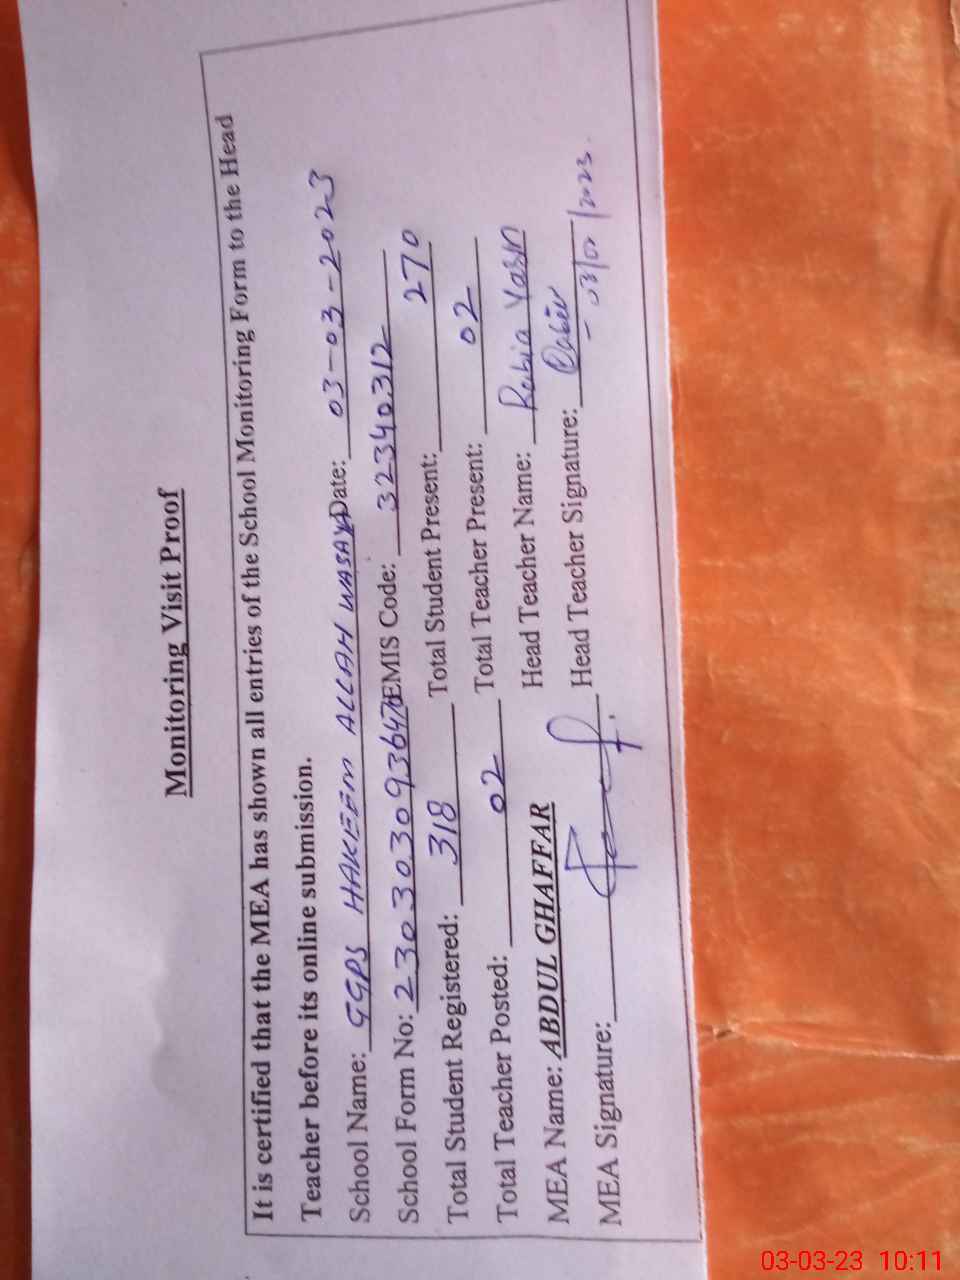 Monitoring Visit Proof
It is certified that the MEA has shown all entries of the School Monitoring Form to the Head
Teacher before its online submission.
School Name: GGPS HAKEEM ALLAH WASAYA Date: 03-03-2023
School Form No: 2303030936470 EMIS Code: 32340312
Total Student Registered: 318 Total Student Present: 270
Total Teacher Posted: 02 Total Teacher Present: 02
MEA Name: ABDUL GHAFFAR Head Teacher Name: Rabia Yasin
MEA Signature: Head Teacher Signature:
03-03-23 10:11